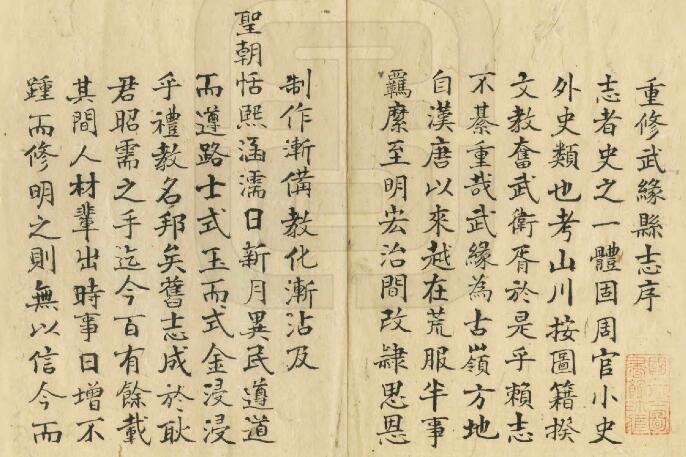 重修武緣縣志序
志者史之一體固周官小史
外史類也考山川按圖籍揆
文教奮武衛胥於是乎賴志
不綦重哉武緣為古嶺方地
自漢唐以來越在荒服半事
羈縻至明宏治間改隸思恩
制作漸備教化漸沾及
聖朝恬熙涵濡日新月異民遵道
而遵路士式玉而式金浸浸
乎禮教名邦矣舊志成於耿
君昭需之手迄今百有餘載
其間人材輩出時事日增不
踵而修明之則無以信今而